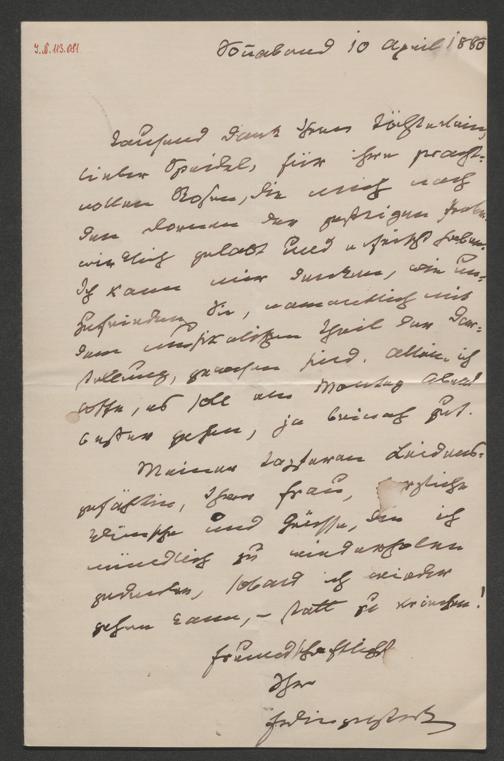 I.N. 113.081
Sonabend 10 April 1880
Tausend Dank Ihrem Töchterlein,
lieber Speidel, für ihre pracht-
vollen Rosen, die mich nach
den Dornen der gestrigen
wirklich gelabt und erfrischt haben.
Ich kann mir denken, wie un-
zufrieden Sie, namentlich mit
dem musikalischen Theil der Dar-
stellung, gewesen sind. Allein ich
hoffe, es soll am Montag Abend
besser gehen, ja beinah gut.
Meiner tapferen Leidens-
gefährtin, Ihrer Frau, herzliche
Wünsche und Grüsse, die ich
mündlich zu wiederholen
gedenke, sobald ich wieder
gehen kann, – statt zu kriechen!
Freundschaftlichst
Ihr